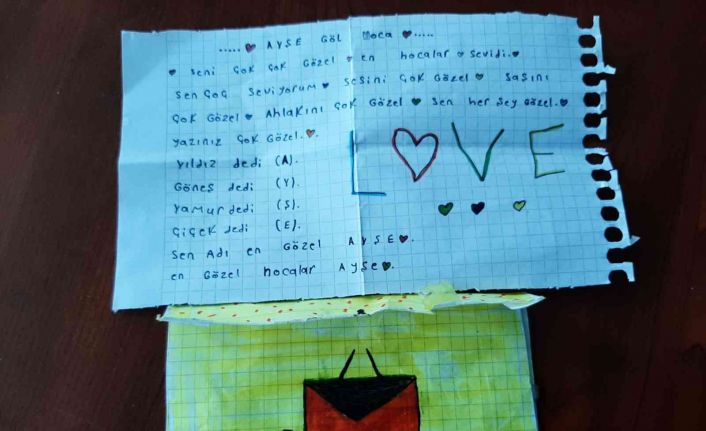 ..... AYSE Göl Hoca .....
Seni çok çok Gözel en hocalar sevidi.
sen çoç seviyorum sesini çok Gözel sasını
çok Gözel Ahlakını çok Gözel sen her sey Gözel.
yazınız çok Gözel.
yıldız dedi (A).
Gönes dedi (Y).
yamur dedi (S).
çiçek dedi (E).
sen Adı en Gözel AYSE.
en Gözel hocalar Ayse.
LOVE